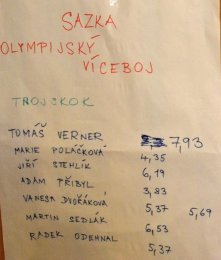 SAZKA
OLYMPIJSKÝ
VÍCEBOJ
TROJSKOK
TOMÁŠ VERNER 7,93
MARIE POLÁČKOVÁ 4,35
JIŘÍ STEHLÍK 6,19
ADAM PŘIBYL 3,83
VANESA DVOŘÁKOVÁ 5,37 5,69
MARTIN SEDLÁK 6,53
RADEK ODEHNAL 5,37